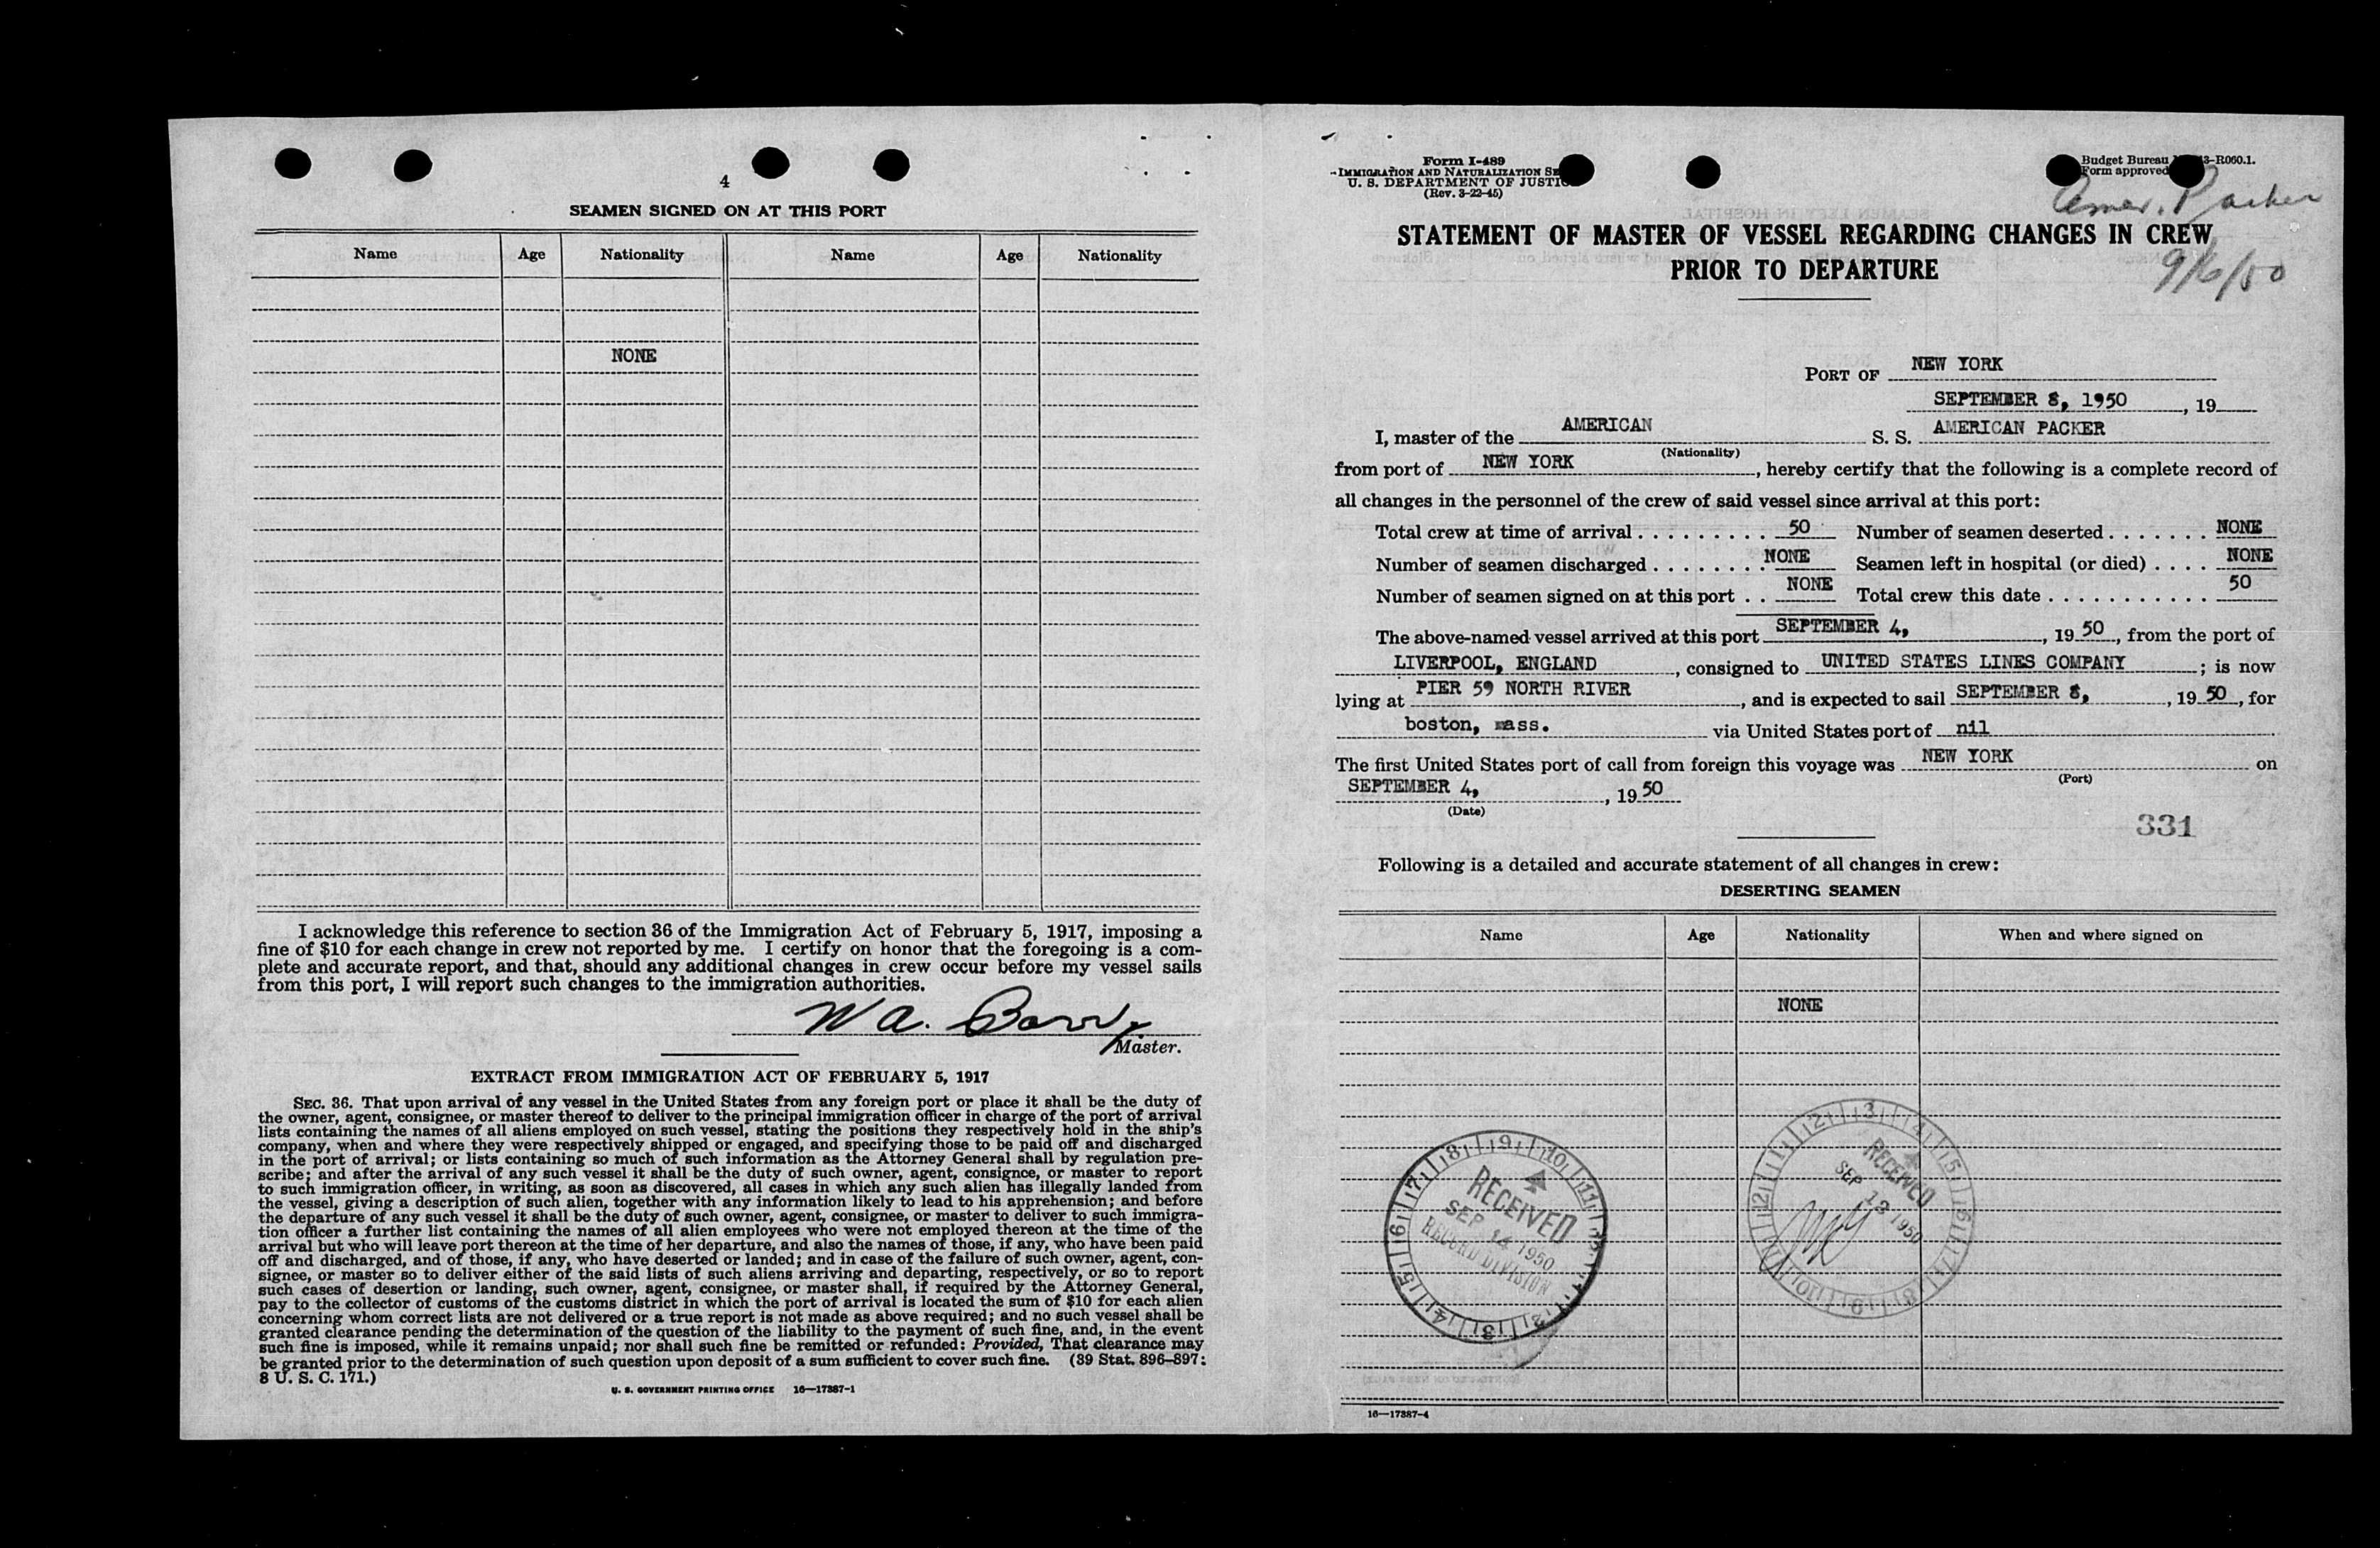 4
SEAMEN SIGNED ON AT THIS PORT
Name Age Nationality Name Age Nationality
NONE
I acknowledge this reference to section 36 of the Immigration Act of February 5, 1917, imposing a
fine of $10 for each change in crew not reported by me. I certify on honor that the foregoing is a com-
plete and accurate report, and that, should any additional changes in crew occur before my vessel sails
from this port, I will report such changes to the immigration authorities.
W A. Barry
Master.
EXTRACT FROM IMMIGRATION ACT OF FEBRUARY 5, 1917
SEC. 36. That upon arrival of any vessel in the United States from any foreign port or place it shall be the duty of
the owner, agent, consignee, or master thereof to deliver to the principal immigration officer in charge of the port of arrival
lists containing the names of all aliens employed on such vessel, stating the positions they respectively hold in the ship's
company, when and where they were respectively shipped or engaged, and specifying those to be paid off and discharged
in the port of arrival; or lists containing so much of such information as the Attorney General shall by regulation pre-
scribe; and after the arrival of any such vessel it shall be the duty of such owner, agent, consignee, or master to report
to such immigration officer, in writing, as soon as discovered, all cases in which any such alien has illegally landed from
the vessel, giving a description of such alien, together with any information likely to lead to his apprehension; and before
the departure of any such vessel it shall be the duty of such owner, agent, consignee, or master to deliver to such immigra-
tion officer a further list containing the names of all alien employees who were not employed thereon at the time of the
arrival but who will leave port thereon at the time of her departure, and also the names of those, if any, who have been paid
off and discharged, and of those, if any, who have deserted or landed; and in case of the failure of such owner, agent, con-
signee, or master so to deliver either of the said lists of such aliens arriving and departing, respectively, or so to report
such cases of desertion or landing, such owner, agent, consignee, or master shall, if required by the Attorney General,
pay to the collector of customs of the customs district in which the port of arrival is located the sum of $10 for each alien
concerning whom correct lists are not delivered or a true report is not made as above required; and no such vessel shall be
granted clearance pending the determination of the question of the liability to the payment of such fine, and, in the event
such fine is imposed, while it remains unpaid; nor shall such fine be remitted or refunded: Provided, That clearance may
be granted prior to the determination of such question upon deposit of a sum sufficient to cover such fine. (39 Stat. 896-897;
8 U. S. C. 171.)
U. S. GOVERNMENT PRINTING OFFICE 16—17387-1
Form I-489
IMMIGRATION AND NATURALIZATION
U. S. DEPARTMENT OF JUSTIC
(Rev. 3-22-45)
Budget Bureau 3-R060.1.
Form approved
Amer. Packer
STATEMENT OF MASTER OF VESSEL REGARDING CHANGES IN CREW
PRIOR TO DEPARTURE
9/6/50
PORT OF NEW YORK
SEPTEMBER 8, 1950, 19
I, master of the AMERICAN S. S. AMERICAN PACKER
(Nationality)
from port of NEW YORK, hereby certify that the following is a complete record of
all changes in the personnel of the crew of said vessel since arrival at this port:
Total crew at time of arrival . . . . . . . . . 50 Number of seamen deserted . . . . . . . NONE
Number of seamen discharged . . . . . . . . NONE Seamen left in hospital (or died) . . . . NONE
Number of seamen signed on at this port . . NONE Total crew this date . . . . . . . . . . . 50
The above-named vessel arrived at this port SEPTEMBER 4, , 19 50, from the port of
LIVERPOOL, ENGLAND, consigned to UNITED STATES LINES COMPANY; is now
lying at PIER 59 NORTH RIVER, and is expected to sail SEPTEMBER 8, , 19 50, for
boston, mass. via United States port of nil
The first United States port of call from foreign this voyage was NEW YORK on
(Port)
SEPTEMBER 4, , 19 50
(Date)
331
Following is a detailed and accurate statement of all changes in crew:
DESERTING SEAMEN
Name Age Nationality When and where signed on
NONE
RECEIVED
SEP 14 1950
RECORD DIVISION
RECEIVED
SEP 13 1950
16—17387-4